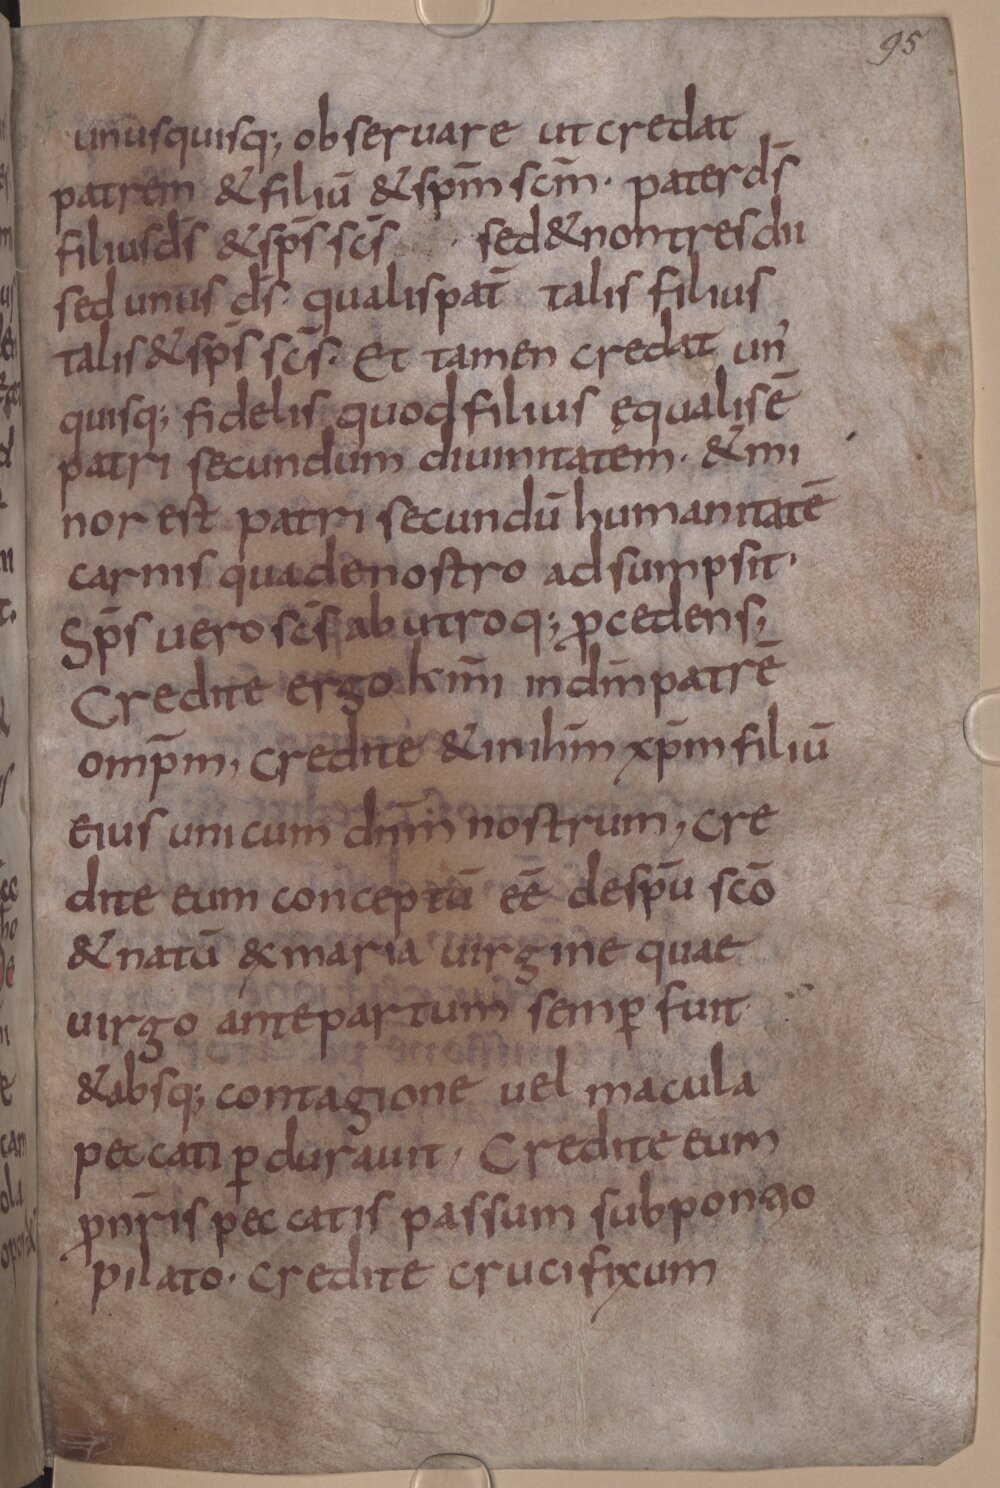 95
unusquisq; observare ut credat
patrem & filiū & spm̄ scm̄· pater ds̄
filius ds̄ & sps̄ scs̄ sed & non tres dii
sed unus ds̄· qualis pat̄ talis filius
talis & sps̄ scs̄· Et tamen credat un'
quisq; fidelis quod filius ęqualis ē
patri secundum divinitatem· & mi
nor est patri secundū humanitatē
carnis qua de nostro adsumpsit·
Sps̄ vero scs̄ ab utroq; ꝓcedens;
Credite ergo km̄i in dm̄ patrē
omp̄m, credite & in ihm̄ xp̄m filiū
eius unicum dnm̄ nostrum, cre
dite eum conceptū eē de spū scō
& natū & maria virgine quae
virgo ante partum semꝑ fuit·
& absq; contagione vel macula
peccati ꝑduravit, Credite eum
ꝓ nr̄is peccatis passum sub pon
pilato· credite crucifixum